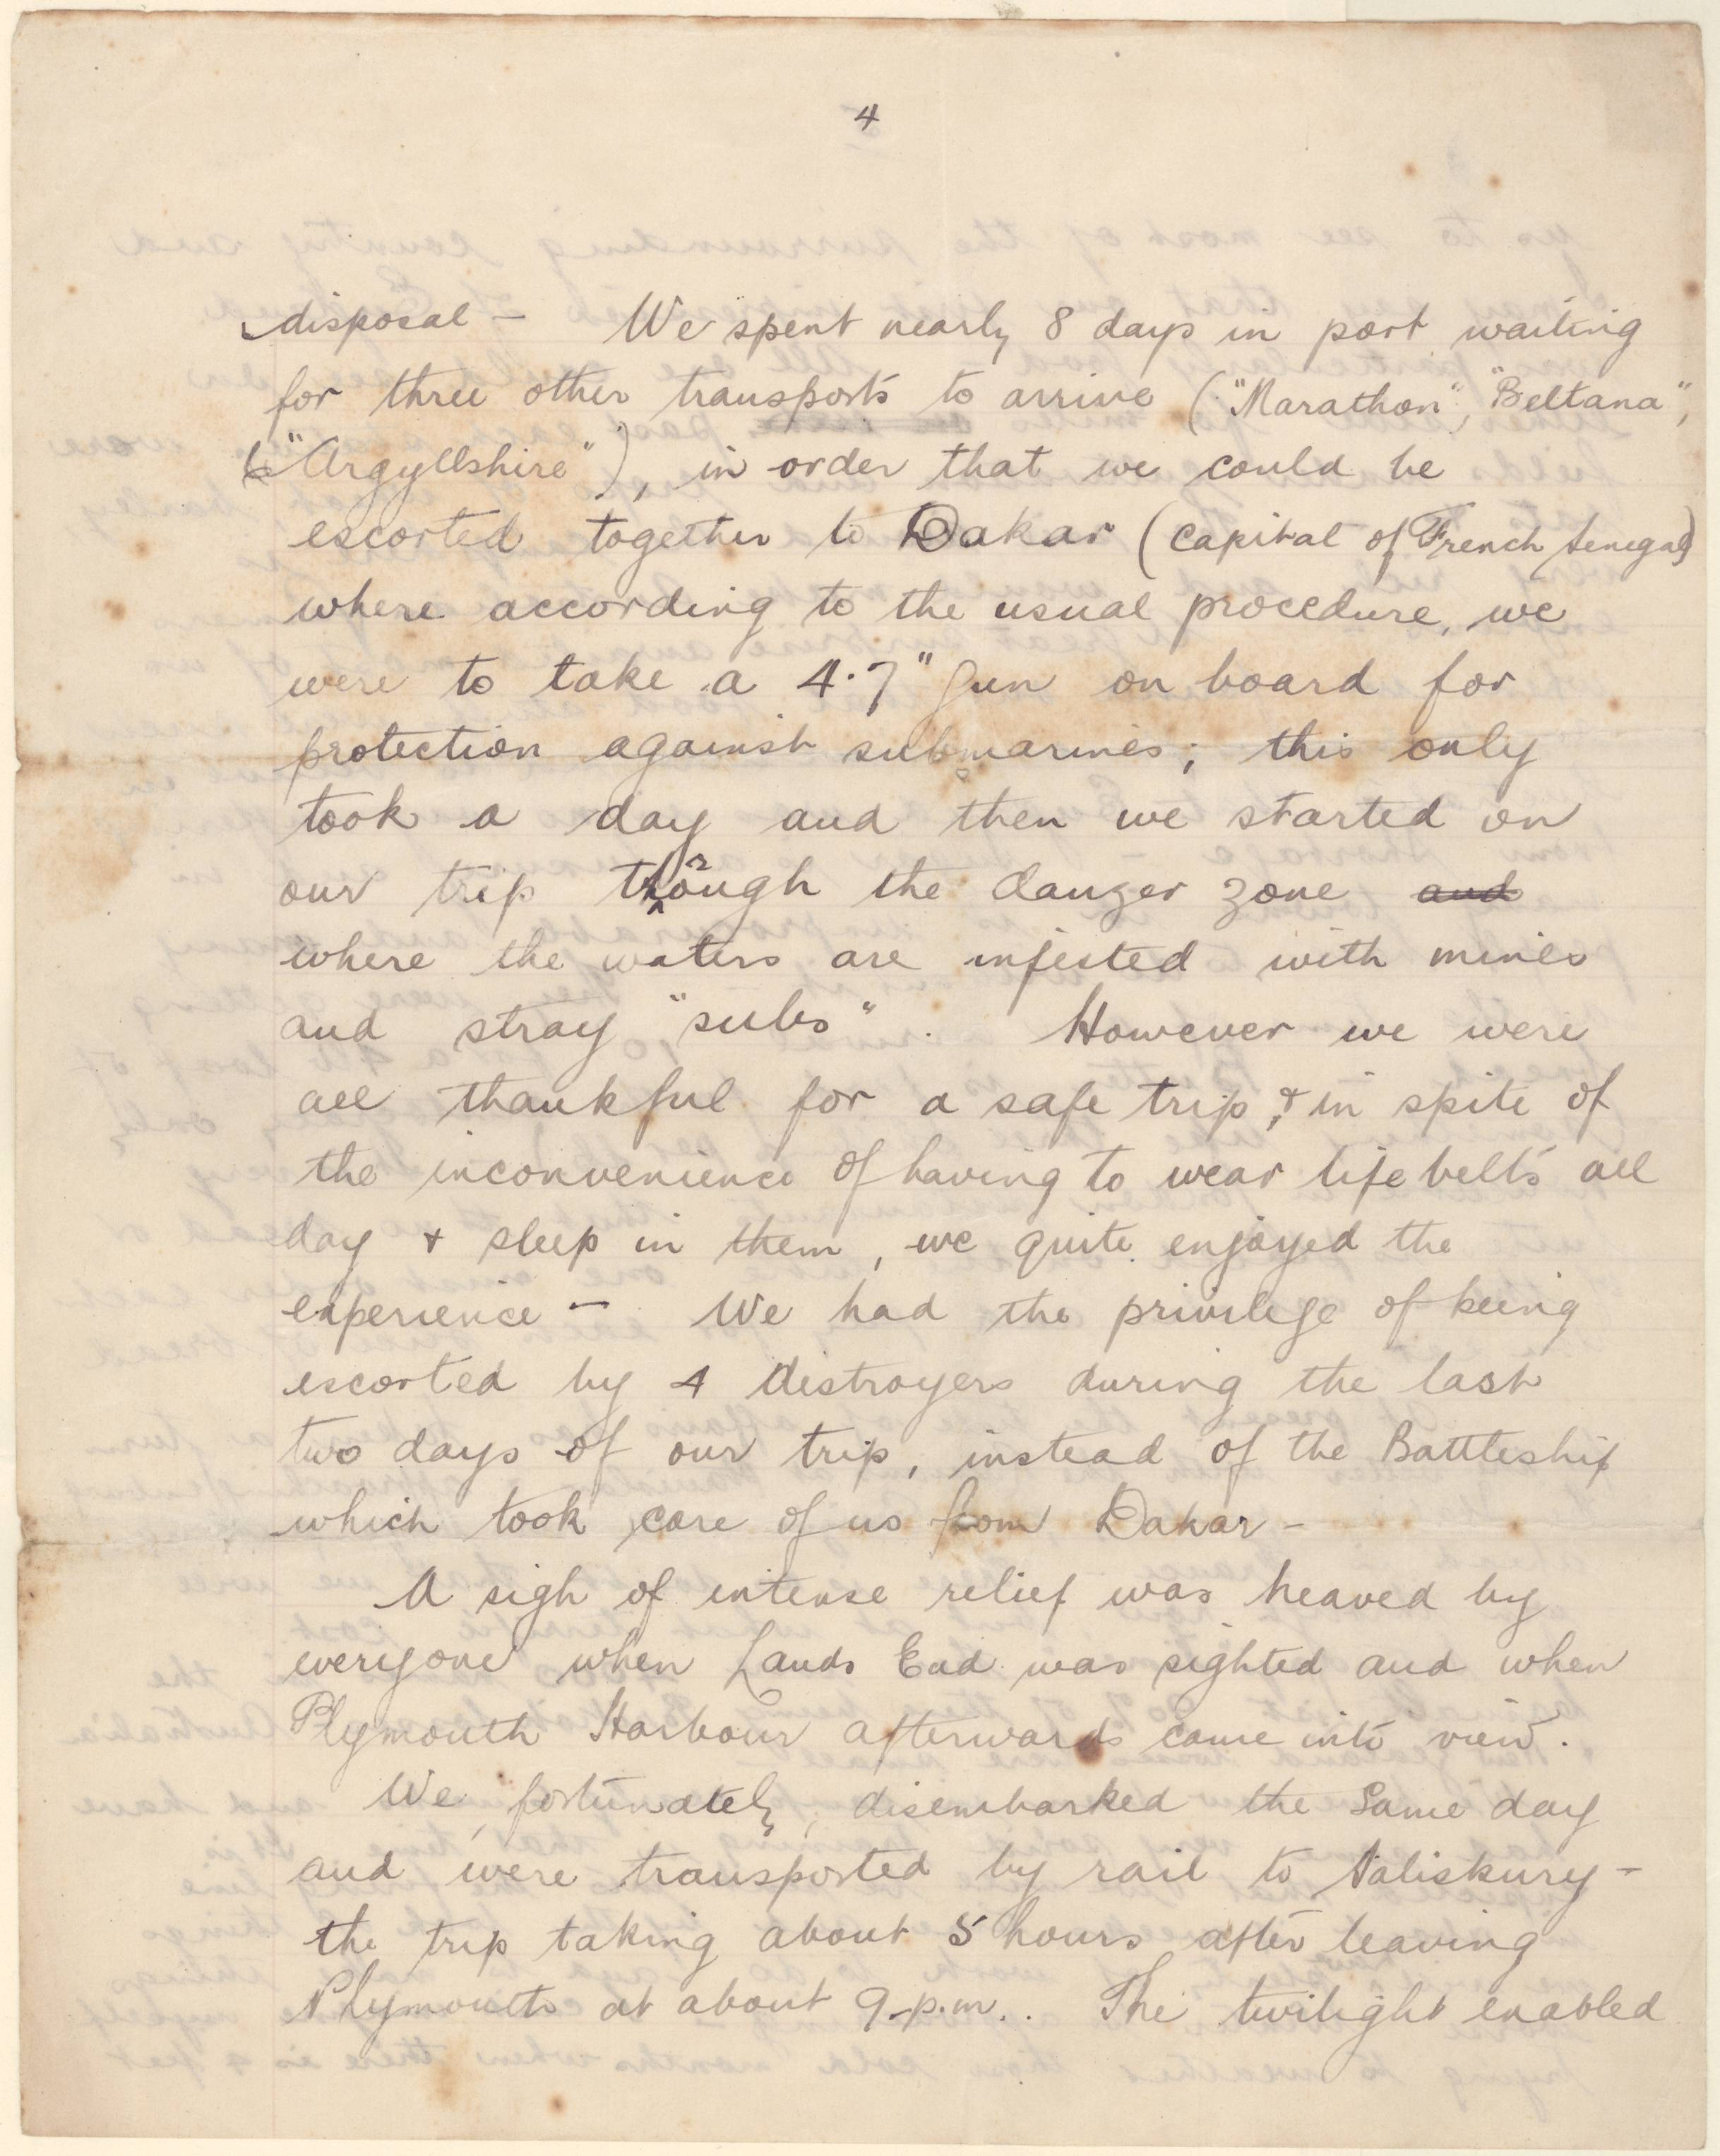 4
disposal - We spent nearly 8 days in port waiting
for three other transports to arrive ("Marathon", "Beltana",
& "Argyllshire"), in order that we could be
escorted together to Dakar (Capital of French Senegal)
where according to the usual procedure, we
were to take a 4.7" Gun on board for
protection against submarines; this only
took a day and then we started on
our trip through the danger zone and
where the waters are infested with mines
and stray "subs". However we were
all thankful for a safe trip, & in spite of
the inconvenience of having to wear life belts all
day & sleep in them, we quite enjoyed the
experience - We had the privilege of being
escorted by 4 Distroyers during the last
two days of our trip, instead of the Battleship
which took care of us from Dakar -
A sigh of intense relief was heaved by
everyone when Lands End was sighted and when
Plymouth Harbour afterwards came into view.
We, fortunately, disembarked the same day
and were transported by rail to Saliskury -
the trip taking about 5 hours after leaving
Plymouth at about 9 p.m.. The twilight enabled